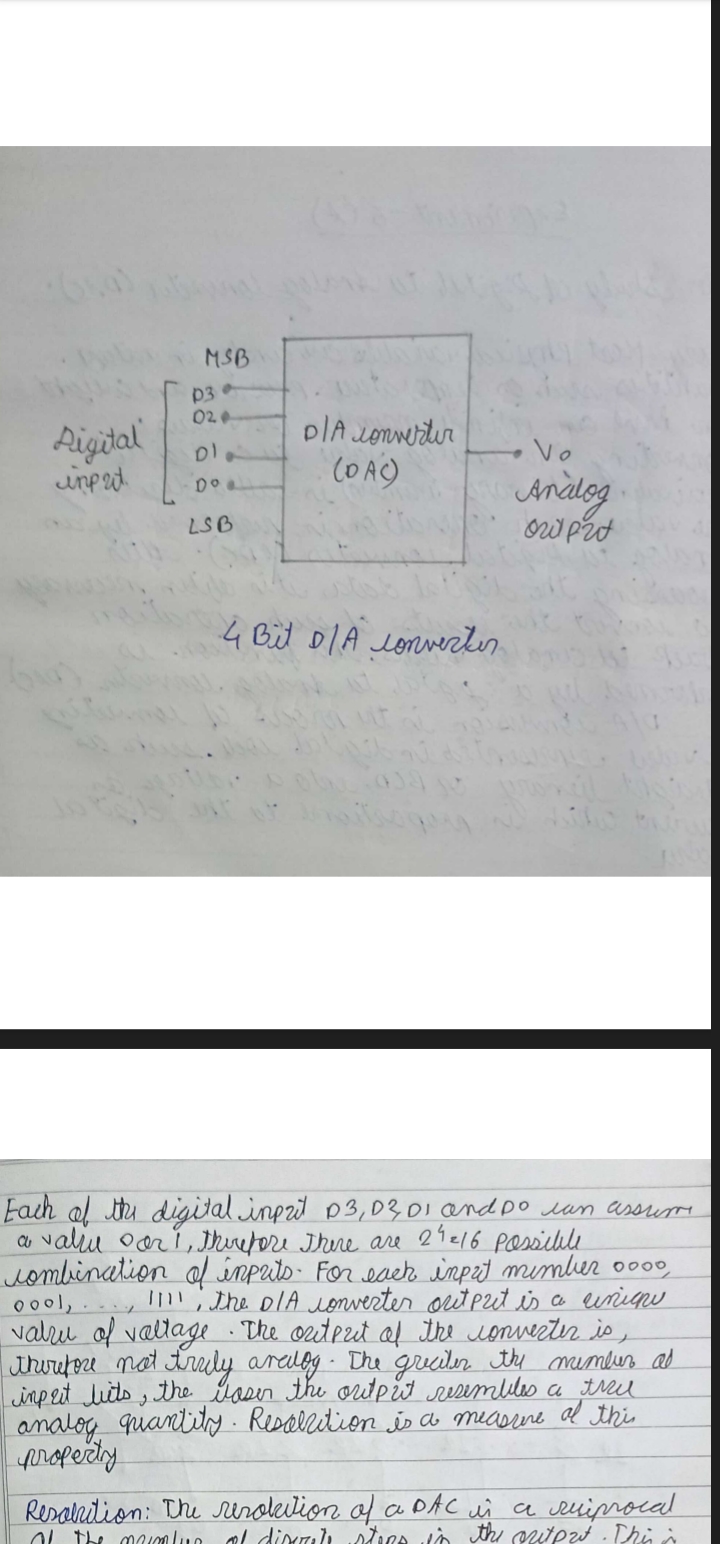 MSB
D3
D2
Digital
input
D1
D0
LSB
D/A converter
(DAC)
Vo
Analog
output
4 Bit D/A converter
Each of the digital input D3, D2, D1 and D0 can assum
a value 0 or 1, therefore there are 2⁴=16 possible
combination of inputs. For each input number 0000,
0001, ..., 1111, the D/A converter output is a unique
value of voltage. The output of the converter is,
therefore not truly analog. The greater the number of
input bits, the closer the output resembles a true
analog quantity. Resolution is a measure of this
property
Resolution: The resolution of a DAC is a reciprocal
of the number of discrete steps in the output. This is